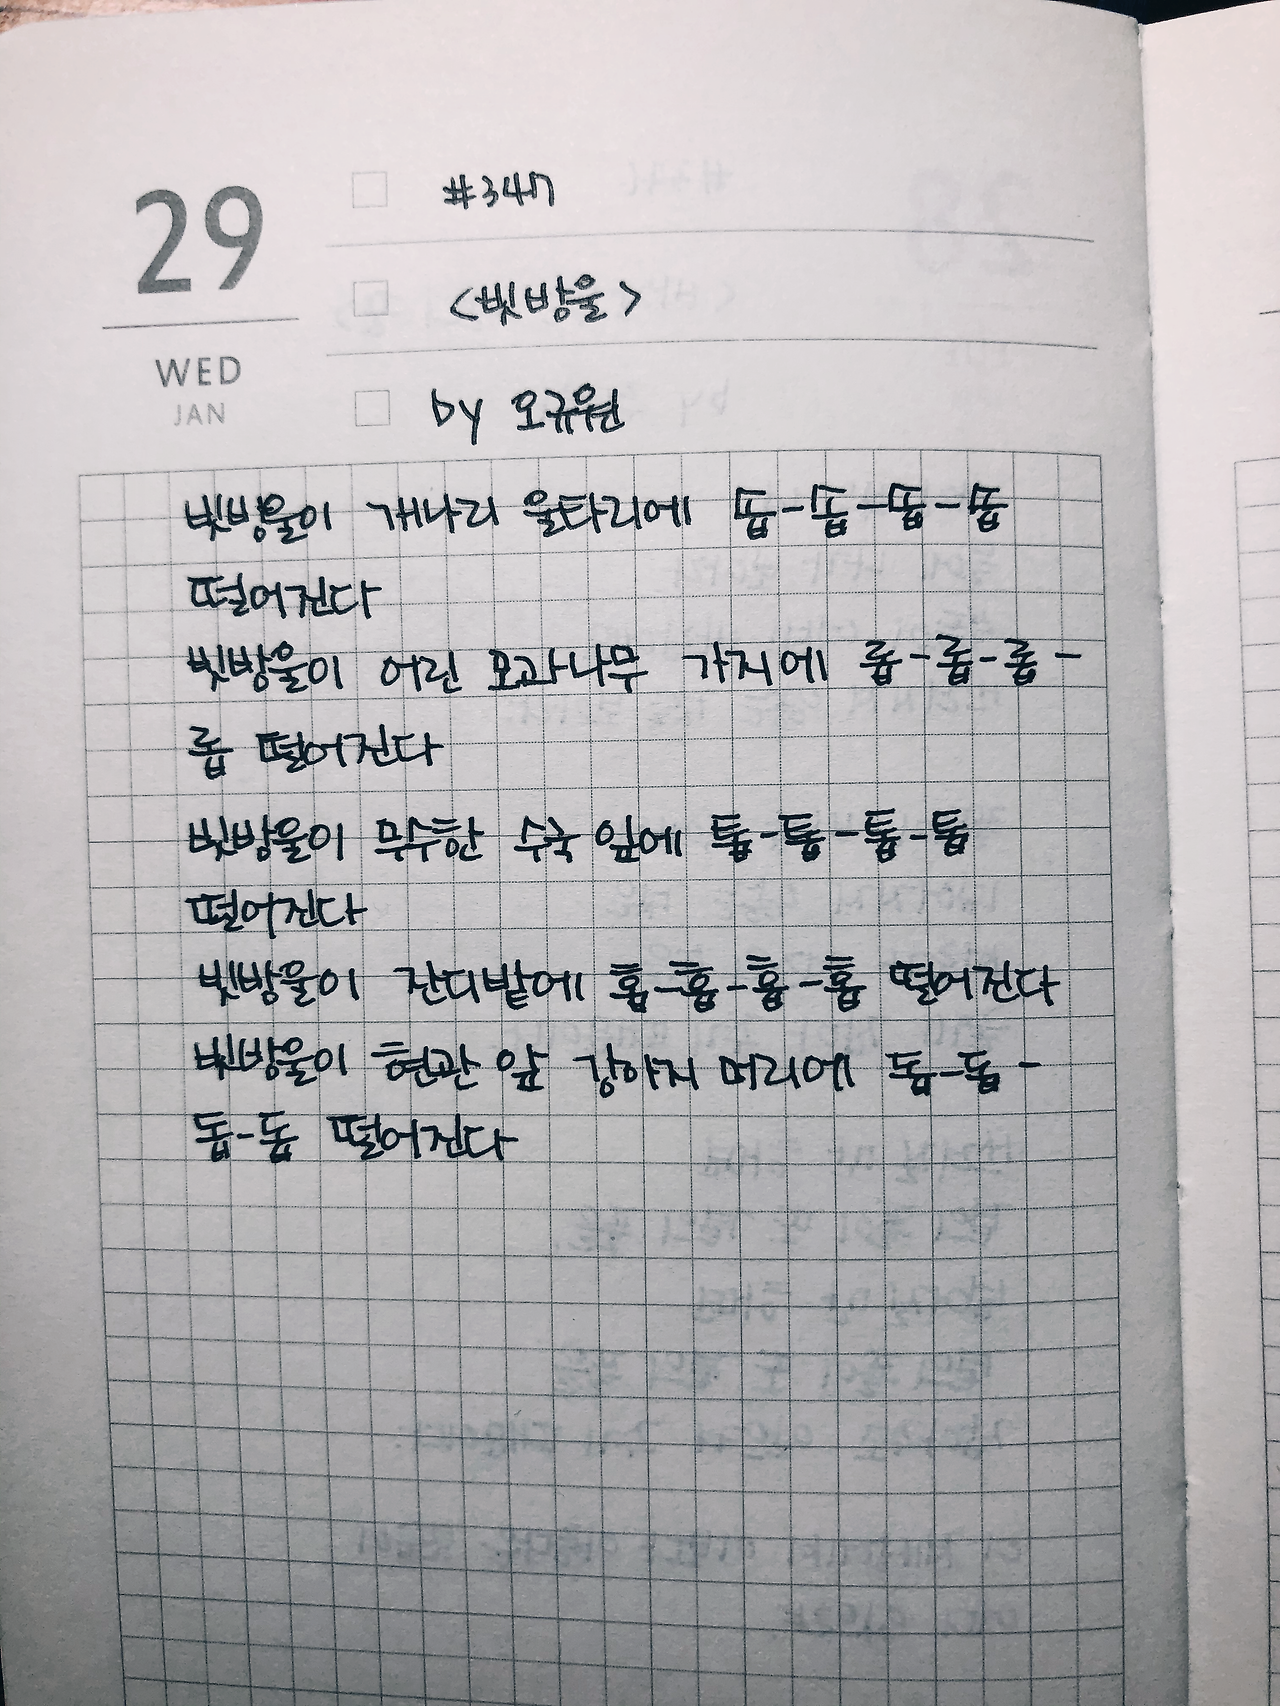 29
#347
<빗방울>
WED
JAN
by 오규원
빗방울이 개나리 울타리에 똡-똡-똡-똡
떨어진다
빗방울이 어린 모과나무 가지에 롭-롭-롭-
롭 떨어진다
빗방울이 무수한 수국 잎에 톱-톱-톱-톱
떨어진다
빗방울이 잔디밭에 홉-홉-홉-홉 떨어진다
빗방울이 현관 앞 강아지 머리에 돕-돕-
돕-돕 떨어진다